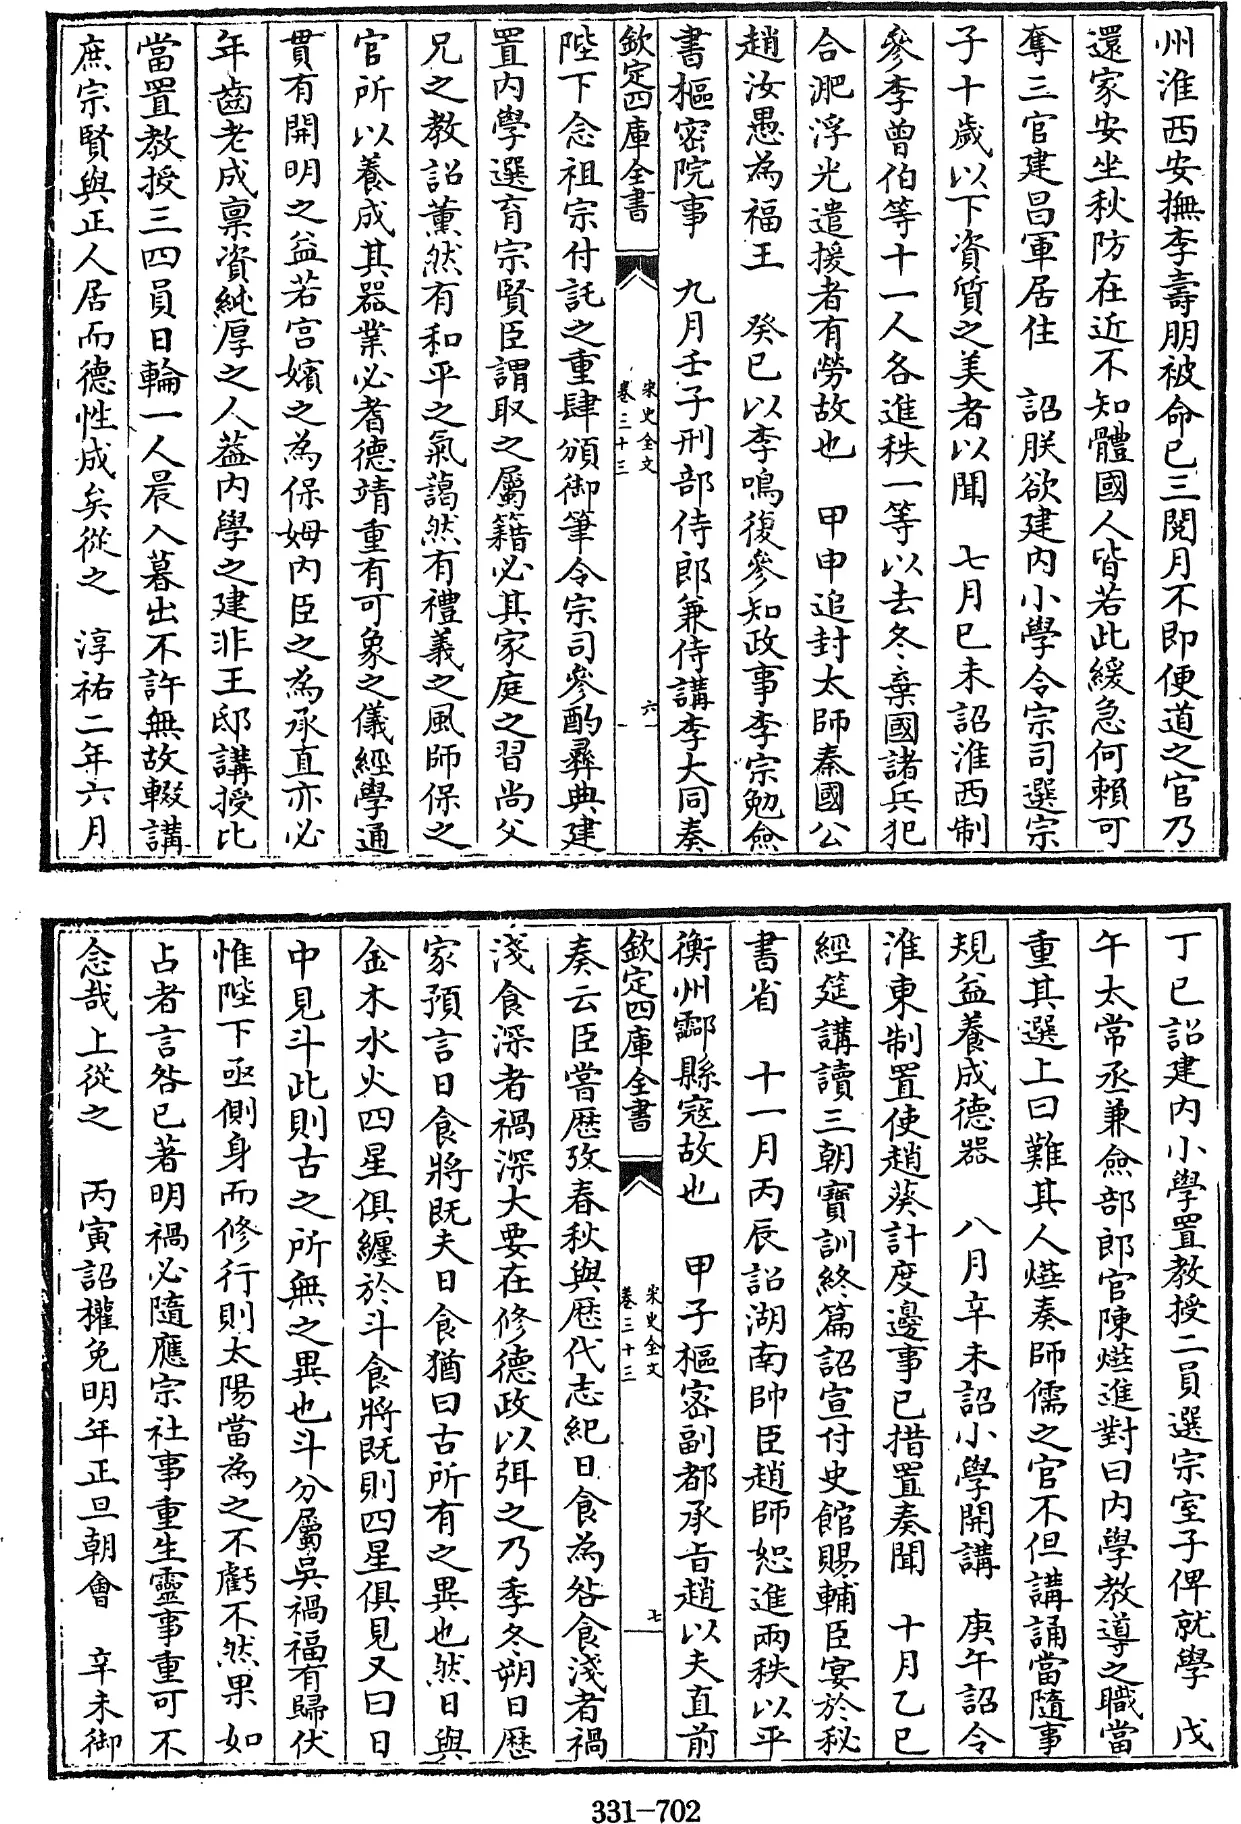 州淮西安撫李壽朋被命已三閱月不即便道之官乃
還家安坐秋防在近不知體國人皆若此緩急何賴可
奪三官建昌軍居住　詔朕欲建内小學令宗司選宗
子十歲以下資質之美者以聞　七月已未詔淮西制
參李曾伯等十一人各進秩一等以去冬棄國諸兵犯
合淝浮光遣援者有勞故也　甲申追封太師秦國公
趙汝愚為福王　癸已以李鳴復參知政事李宗勉僉
書樞密院事　九月壬子刑部侍郎兼侍講李大同奏
欽定四庫全書　宋史全文　卷三十三　六
陛下念祖宗付託之重肆頒御筆令宗司參酌彞典建
置内學選育宗賢臣謂取之屬籍必其家庭之習尚父
兄之教詔薰然有和平之氣藹然有禮義之風師保之
官所以養成其器業必耆德靖重有可象之儀經學通
貫有開明之益若宫嬪之為保姆内臣之為承直亦必
年齒老成稟資純厚之人葢内學之建非王邸講授比
當置教授三四員日輪一人晨入暮出不許無故輟講
庶宗賢與正人居而德性成矣從之　淳祐二年六月
丁已詔建内小學置教授二員選宗室子俾就學　戊
午太常丞兼僉部郎官陳爃進對曰内學教導之職當
重其選上曰難其人爃奏師儒之官不但講誦當隨事
規益養成德器　八月辛未詔小學開講　庚午詔令
淮東制置使趙葵計度邊事已措置奏聞　十月乙已
經筵講讀三朝寶訓終篇詔宣付史館賜輔臣宴於秘
書省　十一月丙辰詔湖南帥臣趙師恕進兩秩以平
衡州酃縣寇故也　甲子樞密副都承旨趙以夫直前
欽定四庫全書　宋史全文　卷三十三　七
奏云臣嘗歴攷春秋與歴代志紀日食為咎食淺者禍
淺食深者禍深大要在修德政以弭之乃季冬朔日歴
家預言日食將既夫日食猶曰古所有之異也然日與
金木水火四星俱纏於斗食將既則四星俱見又曰日
中見斗此則古之所無之異也斗分屬吳禍福有歸伏
惟陛下亟側身而修行則太陽當為之不虧不然果如
占者言咎已著明禍必隨應宗社事重生靈事重可不
念哉上從之　丙寅詔權免明年正旦朝會　辛未御
331-702